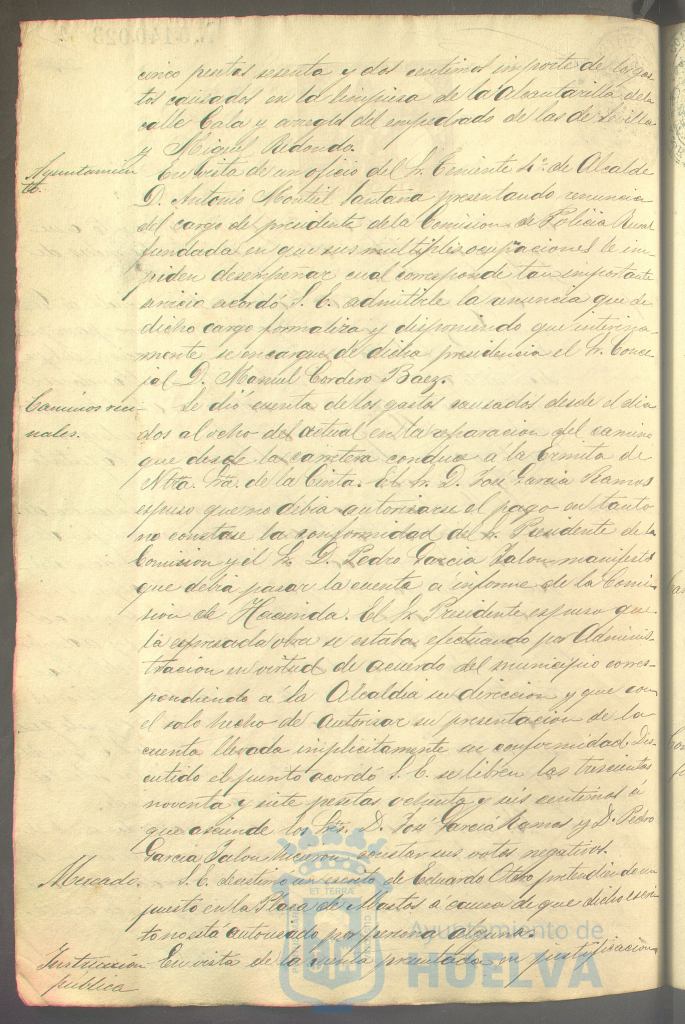 cinco pesetas sesenta y dos centimos importe de los gas-
tos causados en la limpiesa de la Alcantarilla de la
calle Cala y arreglo del empedrado de las de Sevilla
y Miguel Redondo.
Ayuntamien
to.
En vista de un oficio del Sr. Teniente 4º de Alcalde
D. Antonio Montiel Santana presentando renuncia
del cargo de presidente de la Comision de Policia Rural
fundada en que sus multiples ocupaciones le im-
piden desempeñar cual corresponde tan importante
servicio acordó S. E. admitirle la renuncia que de
dicho cargo formaliza y disponiendo que interina-
mente se encargue de dicha presidencia el Sr. Conce-
jal D. Manuel Cordero Baez.
Caminos veci-
nales.
Se dió cuenta de los gastos causados desde el dia
dos al ocho del actual en la reparacion del camino
que desde la carretera conduce a la Ermita de
Ntra. Sra. de la Cinta. El Sr. D. José Garcia Ramos
espuso que no debia autorisarse el pago en tanto
no constase la conformidad del Sr. Presidente de la
Comision y el Sr. D. Pedro Garcia Jalon manifestó
que debia pasar la cuenta a informe de la Comi-
sion de Hacienda. El Sr. Presidente espuso que
la espresada obra se estaba efectuando por Adminis-
tracion en virtud de acuerdo del municipio corres-
pondiendo a la Alcaldia su direccion y que con
el solo hecho de autorisar su presentacion de la
cuenta llevada implicitamente su conformidad. Dis-
cutido el punto acordó S. E. se libren las trescientas
noventa y siete pesetas ochenta y seis centimos a
que asciende los Sres. D. José Garcia Ramos y D. Pedro
Garcia Jalon hicieron constar sus votos negativos.
Mercado.
S. E. desestimó un escrito de Eduardo Otero pretendiendo un
puesto en la Plaza de Abastos a causa de que dicho escri-
to no está autorisado por persona alguna.
Instruccion
publica
En vista de la cuenta presentada en justificacion
ET TERRA
Ayuntamiento de
HUELVA